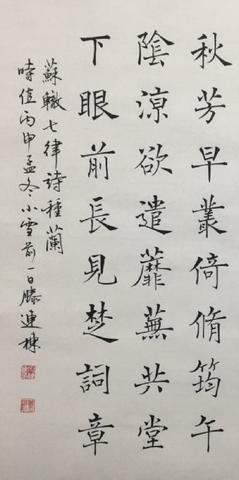 秋芳早叢倚脩筠午
陰涼欲遣蘼蕪共堂
下眼前長見楚詞章
蘇轍七律詩種蘭
時值丙申孟冬小雪前一日滕連棟